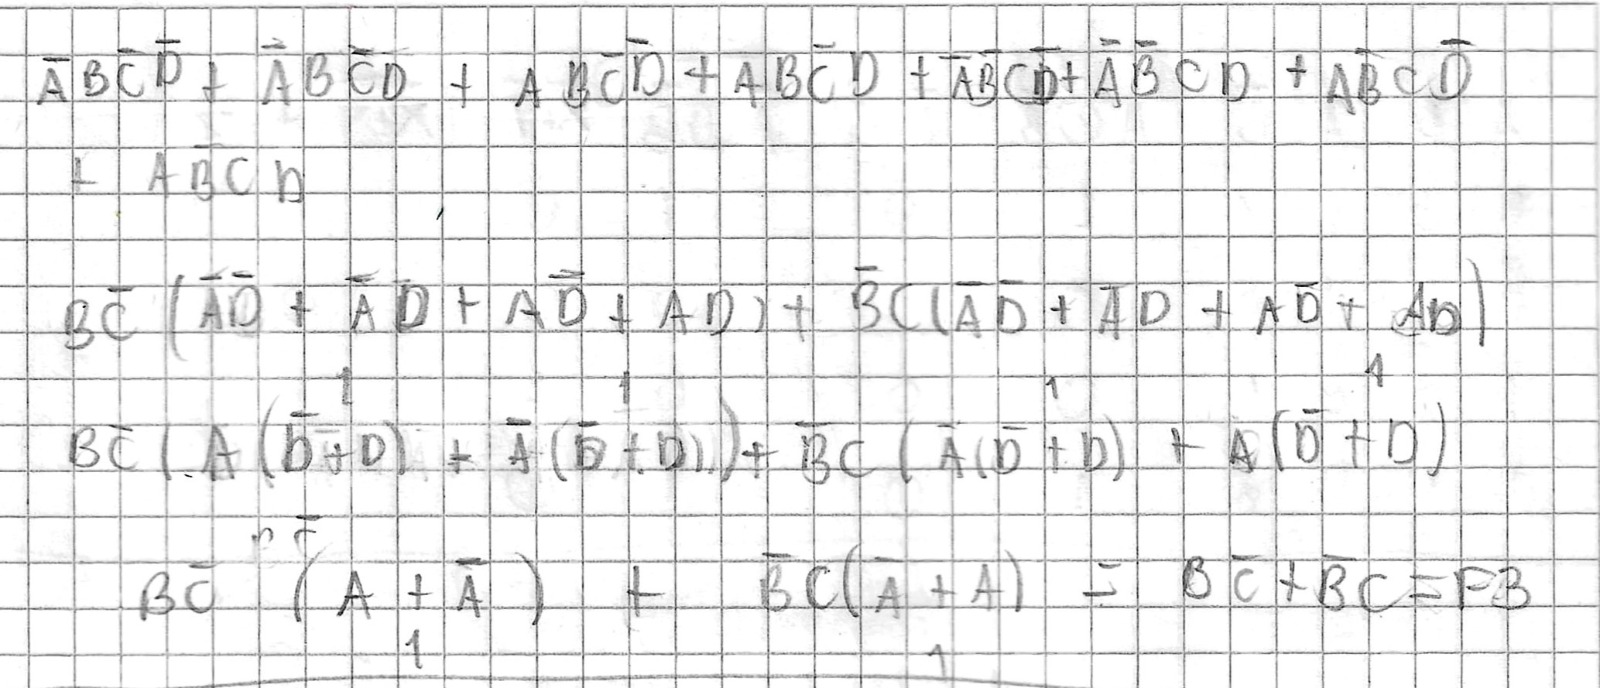 A̅BC̅D̅ + A̅BC̅D + ABC̅D̅ + ABC̅D + A̅B̅CD̅ + A̅B̅CD + AB̅CD̅
+ AB̅CD
BC̅(A̅D̅ + A̅D + AD̅ + AD) + B̅C(A̅D̅ + A̅D + AD̅ + AD)
1 1 1 1
BC̅(A(D̅+D) + A̅(D̅+D)) + B̅C(A̅(D̅+D) + A(D̅+D)
BC̅ (A + A̅) + B̅C(A̅ + A) = BC̅+B̅C=FB
1 1